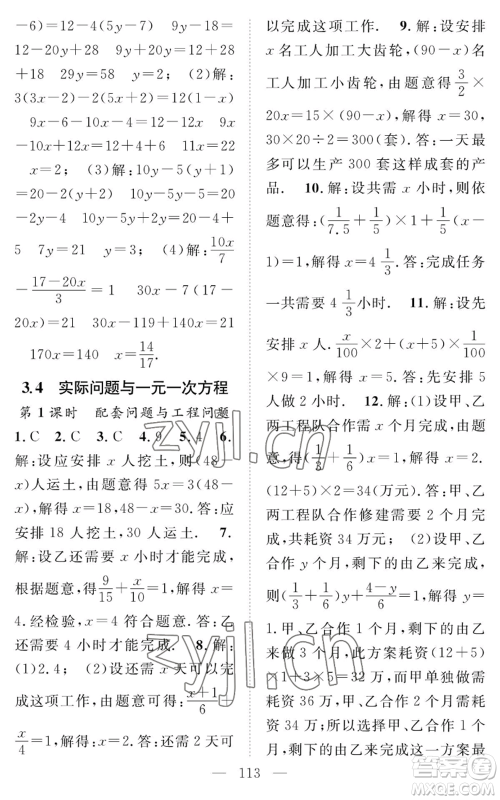 -6)=12　9y-18=10y-12+
+18　29y=60　y=　(2)解:
3(3x-2)-2(5x-6)=12(1-x)
9x-6-10x+12=12-12x　9x
-10x+12x=12+6　11x=
　x=　(3)解:10y-5(y+1)
=20-2(y+2)　10y-5y-5=
20-2y-4　5y+2y=20-4+
5　7y=21　y=3　(4)解:10x/7
-(17-20x)/3=1　30x-7(17-
20x)=21　30x-119+140x=21
170x=140　x=14/17.
3.4　实际问题与一元一次方程
第1课时　配套问题与工程问题
1.C　2.C　3.C　4.9　5.4　6.
解:设应安排x人挖土,则(48-
x)人运土,由题意得5x=3(48-
x),解得x=18,48-x=30.答:应
安排18人挖土,30人运土.　7.
解:设乙还需要x小时才能完成,
根据题意,得9/15+x/10=1,解得x=
4.经检验,x=4符合题意.答:乙
还需要4小时才能完成.　8.解:
(1)2.4,(2)设还需x天可以完
成这项工作,由题意可得:(x+1)/6
x/4=1,解得x=2.答:还需2天可
以完成这项工作.　9.解:设安排
x名工人加工大齿轮,(90-x)名
工人加工小齿轮,由题意得3/2×
20x=15×(90-x),解得x=30,
30×20÷2=300(套).答:一天最
多可以生产300套这样成套的产
品.　10.解:设共需x小时,则依
题意得:(1/7.5+1/5)×1+1/5(x-
1)=1,解得x=4 1/3.答:完成任务
一共需要4 1/3小时.　11.解:设先
安排x人,x/100×2+(x+5)/100×8=
1,解得x=6.答:先安排6人工作
2天.　12.解:(1)设甲、乙
两工程队合作需要x个月完成,由
题意,得(1/3+1/6)x=1,解得x=2,
(12+5)×2=34(万元).答:甲、乙
两工程队合作修建需要2个月完
成,共耗资34万元.　(2)设甲、乙
合作y个月,剩下的由乙来完成.
则(1/3+1/6)y+(4-y)/6=1,解得y=
1.甲、乙合作1个月,剩下的由乙
来完成.则此方案耗资(12+5)
×1+3×5=32(万元),而甲单独做
需要耗资36万,甲、乙合作需要
耗资34万,所以选择甲、乙合作1
个月,剩下的由乙完成这一方案最
— 113 —
zyjl.cn
答案圈
MXQE.COM